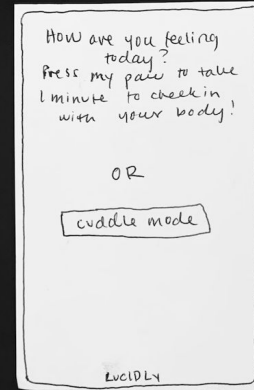 How are you feeling
today?
Press my paw to take
1 minute to check in
with your body!
OR
cuddle mode
LUCIDLY